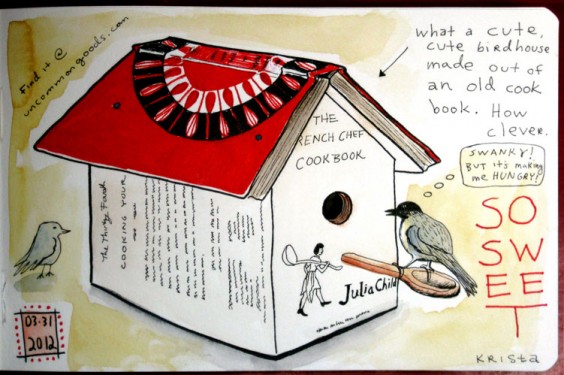 Find it @
uncommongoods.com
what a cute,
cute birdhouse
made out of
an old cook
book. How
clever.
SWANKY!
BUT it's making
me HUNGRY!
SO
SW
EE
T
THE
FRENCH CHEF
COOKBOOK
COOKING YOUR
Julia Child
03·31
2012
KRISta